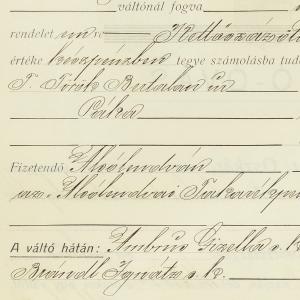 váltónál fogva
rendelet en re Kettőszázöt
értéke készpénzben tegye számolásba tud
T. Török Bertalan úr
Páka
Fizetendő Alsólendván
az Alsólendvai Takarékpén
A váltó hátán: Ambrus Gizella s. k.
Brándl Ignátz s. k.